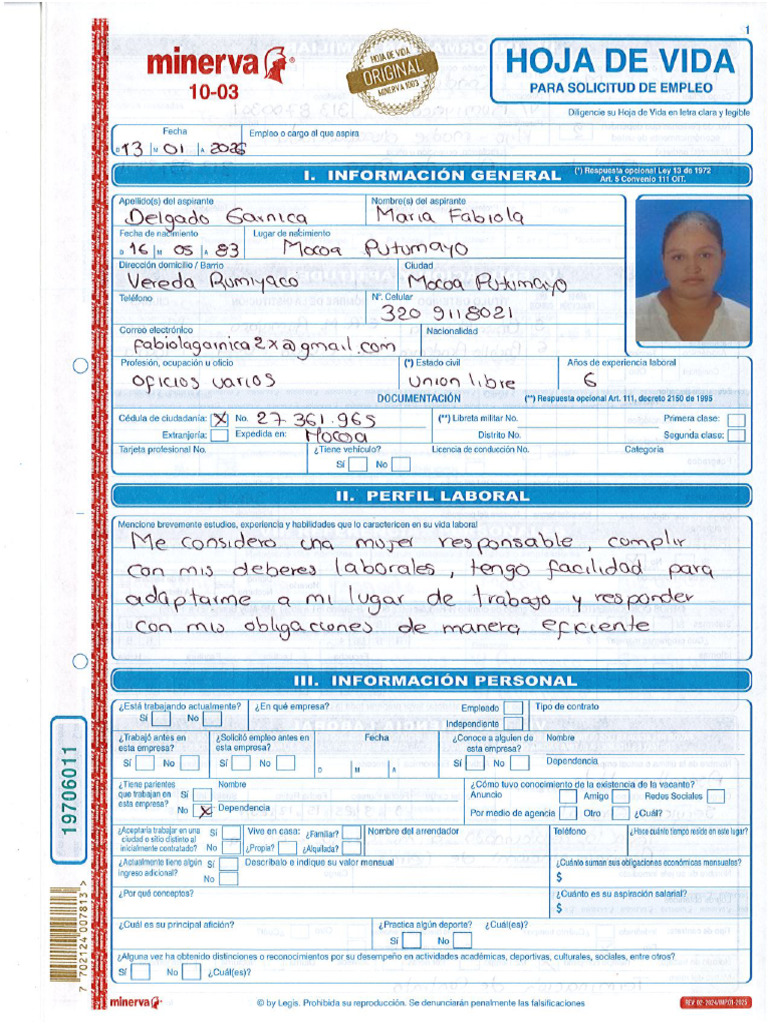 1
minerva®
10-03
HOJA DE VIDA
ORIGINAL
MINERVA 1003
HOJA DE VIDA
PARA SOLICITUD DE EMPLEO
Diligencie su Hoja de Vida en letra clara y legible
Fecha
Empleo o cargo al que aspira
D 13 M 01 A 2026
I. INFORMACIÓN GENERAL
(*) Respuesta opcional Ley 13 de 1972
Art. 5 Convenio 111 OIT.
Apellido(s) del aspirante
Nombre(s) del aspirante
Delgado Garnica
Maria Fabiola
Fecha de nacimiento
Lugar de nacimiento
D 16 M 05 A 83
Mocoa Putumayo
Dirección domicilio / Barrio
Ciudad
Vereda Rumiyaco
Mocoa Putumayo
Teléfono
Nº. Celular
320 9118021
Correo electrónico
Nacionalidad
fabiolagarnica2x@gmail.com
Profesión, ocupación u oficio
(*) Estado civil
Años de experiencia laboral
oficios varios
union libre
6
DOCUMENTACIÓN
(**) Respuesta opcional Art. 111, decreto 2150 de 1995
Cédula de ciudadanía: X No. 27.361.965
(**) Libreta militar No.
Primera clase:
Extranjería:
Expedida en: Mocoa
Distrito No.
Segunda clase:
Tarjeta profesional No.
¿Tiene vehículo?
Licencia de conducción No.
Categoría
Sí No
II. PERFIL LABORAL
Mencione brevemente estudios, experiencia y habilidades que lo caractericen en su vida laboral
Me considero una mujer responsable, cumplir
con mis deberes laborales, tengo facilidad para
adaptarme a mi lugar de trabajo y responder
con mis obligaciones de manera eficiente
III. INFORMACIÓN PERSONAL
¿Está trabajando actualmente?
¿En qué empresa?
Empleado
Tipo de contrato
Sí No
Independiente
¿Trabajó antes en
esta empresa?
¿Solicitó empleo antes en
esta empresa?
Fecha
¿Conoce a alguien de
esta empresa?
Nombre
Dependencia
Sí No
Sí No
D M A
Sí No
¿Tiene parientes
que trabajan en
esta empresa?
Sí
No X
Nombre
Dependencia
¿Cómo tuvo conocimiento de la existencia de la vacante?
Anuncio Amigo Redes Sociales
Por medio de agencia Otro ¿Cuál?
¿Aceptaría trabajar en una
ciudad o sitio distinto al
inicialmente contratado?
Sí
No
Vive en casa: ¿Familiar?
¿Propia? ¿Alquilada?
Nombre del arrendador
Teléfono
¿Hace cuánto tiempo reside en este lugar?
¿Actualmente tiene algún
ingreso adicional?
Sí
No
Descríbalo e indique su valor mensual
¿Cuánto suman sus obligaciones económicas mensuales?
$
¿Por qué conceptos?
¿Cuánto es su aspiración salarial?
$
¿Cuál es su principal afición?
¿Practica algún deporte?
¿Cuál(es)?
Sí No
¿Alguna vez ha obtenido distinciones o reconocimientos por su desempeño en actividades académicas, deportivas, culturales, sociales, entre otros?
Sí No ¿Cuál(es)?
19706011
7 702124 007813 >
minerva
© by Legis. Prohibida su reproducción. Se denunciarán penalmente las falsificaciones